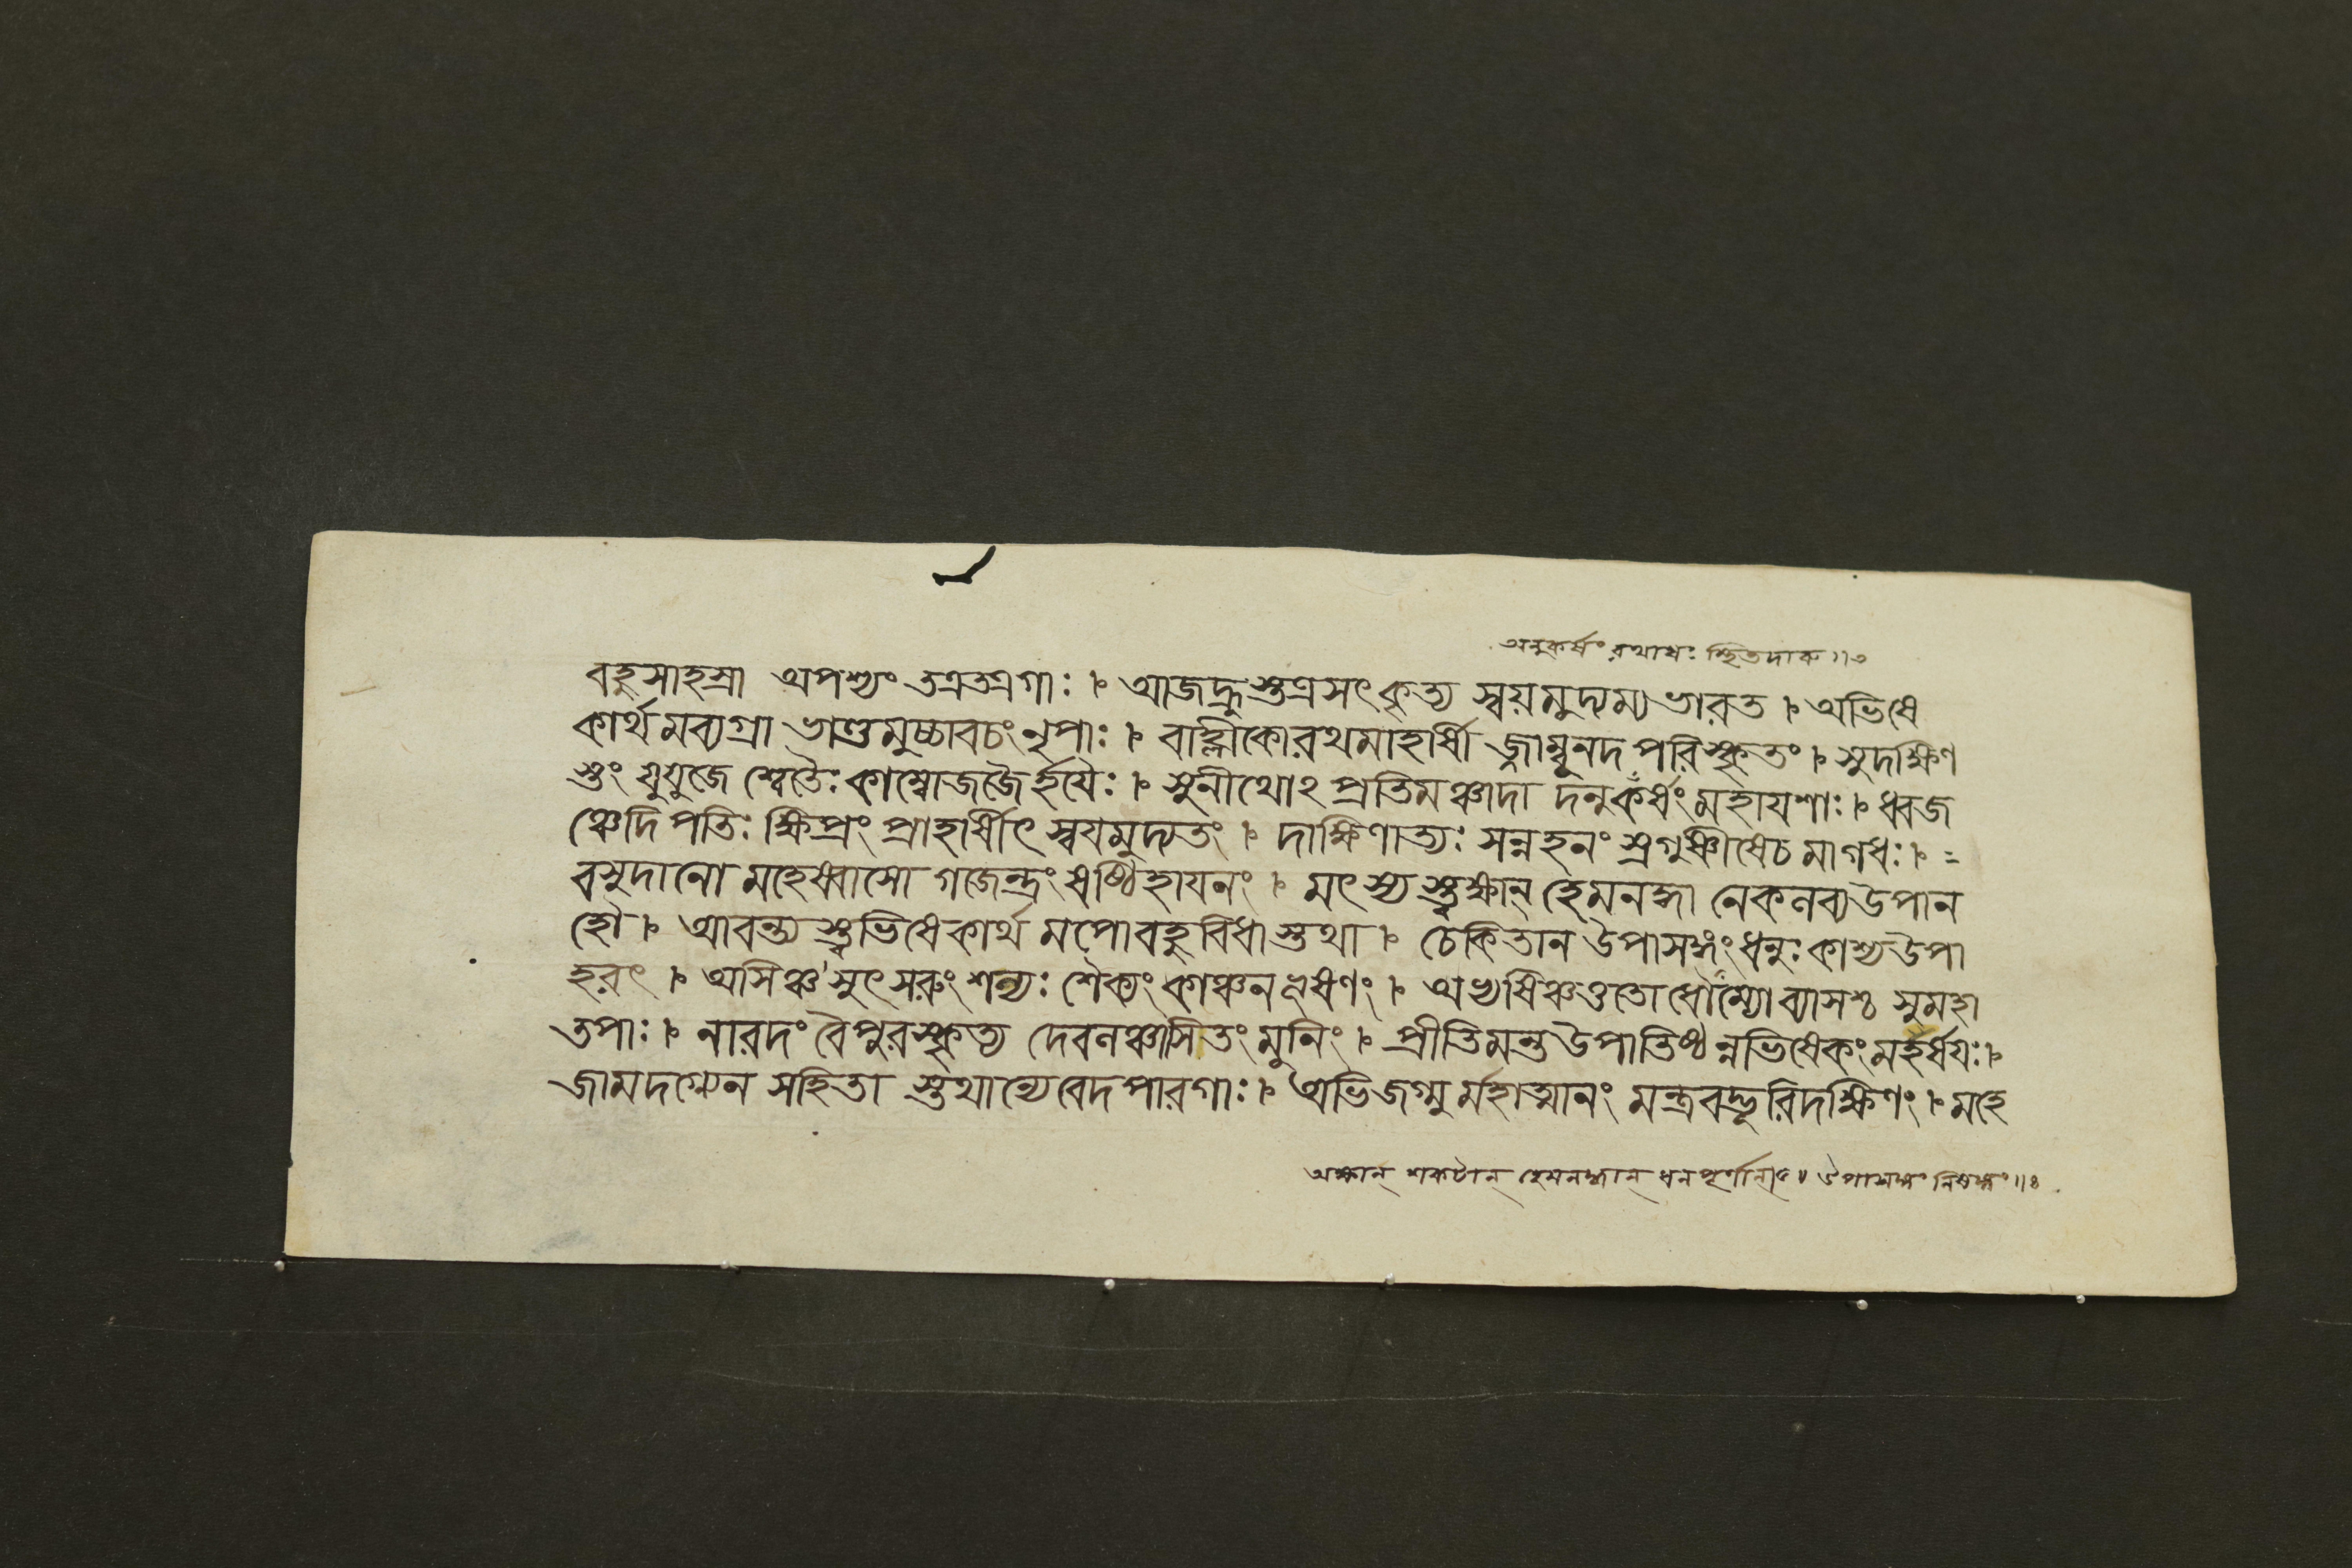 অনুকর্ষং রথাধঃ স্থিতদারু॥৩
বহুসাহস্রা অপশ্যং তত্রতত্রগাঃ । আজহ্রুস্তত্রসৎকৃত্য স্বয়মুদ্যম্যভারত । অভিষে
কার্থমব্যগ্রা ভাণ্ডমুচ্চাবচং নৃপাঃ । বাহ্লীকোরথমাহার্ষী জ্জাম্বূনদপরিস্কৃতং । সুদক্ষিণ
স্তং যুযুজে শ্বেতৈঃ কাম্বোজজৈর্হযৈঃ । সুনীথোঽপ্রতিমঞ্চাদা দনুকর্ষং মহাযশাঃ । ধ্বজ
ঞ্চেদিপতিঃ ক্ষিপ্রং প্রাহার্ষীৎ স্বযমুদ্যতং । দাক্ষিণাত্যঃ সন্নহনং স্রগুষ্ণীষেচমাগধঃ ।
বসুদানো মহেষ্বাসো গজেন্দ্রং ষষ্টিহাযনং । মৎস্য স্ত্বক্ষান্ হেমনদ্ধা নেকলব্যউপান
হৌ । আবন্ত্য স্ত্বভিষেকার্থ মপোবহুবিধাস্তথা । চেকিতান উপাসঙ্গং ধনুঃ কাশ্যউপা
হরৎ । অসিঞ্চ সুৎসরুং শল্যঃ শৈক্যং কাঞ্চনভূষণং । অভ্যষিঞ্চত্ততোধৌম্যোব্যাসশ্চ সুমহা
তপাঃ । নারদং বৈপুরস্কৃত্য দেবলঞ্চাসিতং মুনিং । প্রীতিমন্তউপাতিষ্ঠন্নভিষেকং মহর্ষযঃ ।
জামদগ্ন্যেন সহিতা স্তথান্যেবেদপারগাঃ । অভিজগ্মু র্মহাত্মানং মন্ত্রবদ্ভূরিদক্ষিণং । মহে
অক্ষান্ শকটান্ হেমনদ্ধান্ ধনপূর্ণান্ ॥ উপাসঙ্গং নিষঙ্গং॥